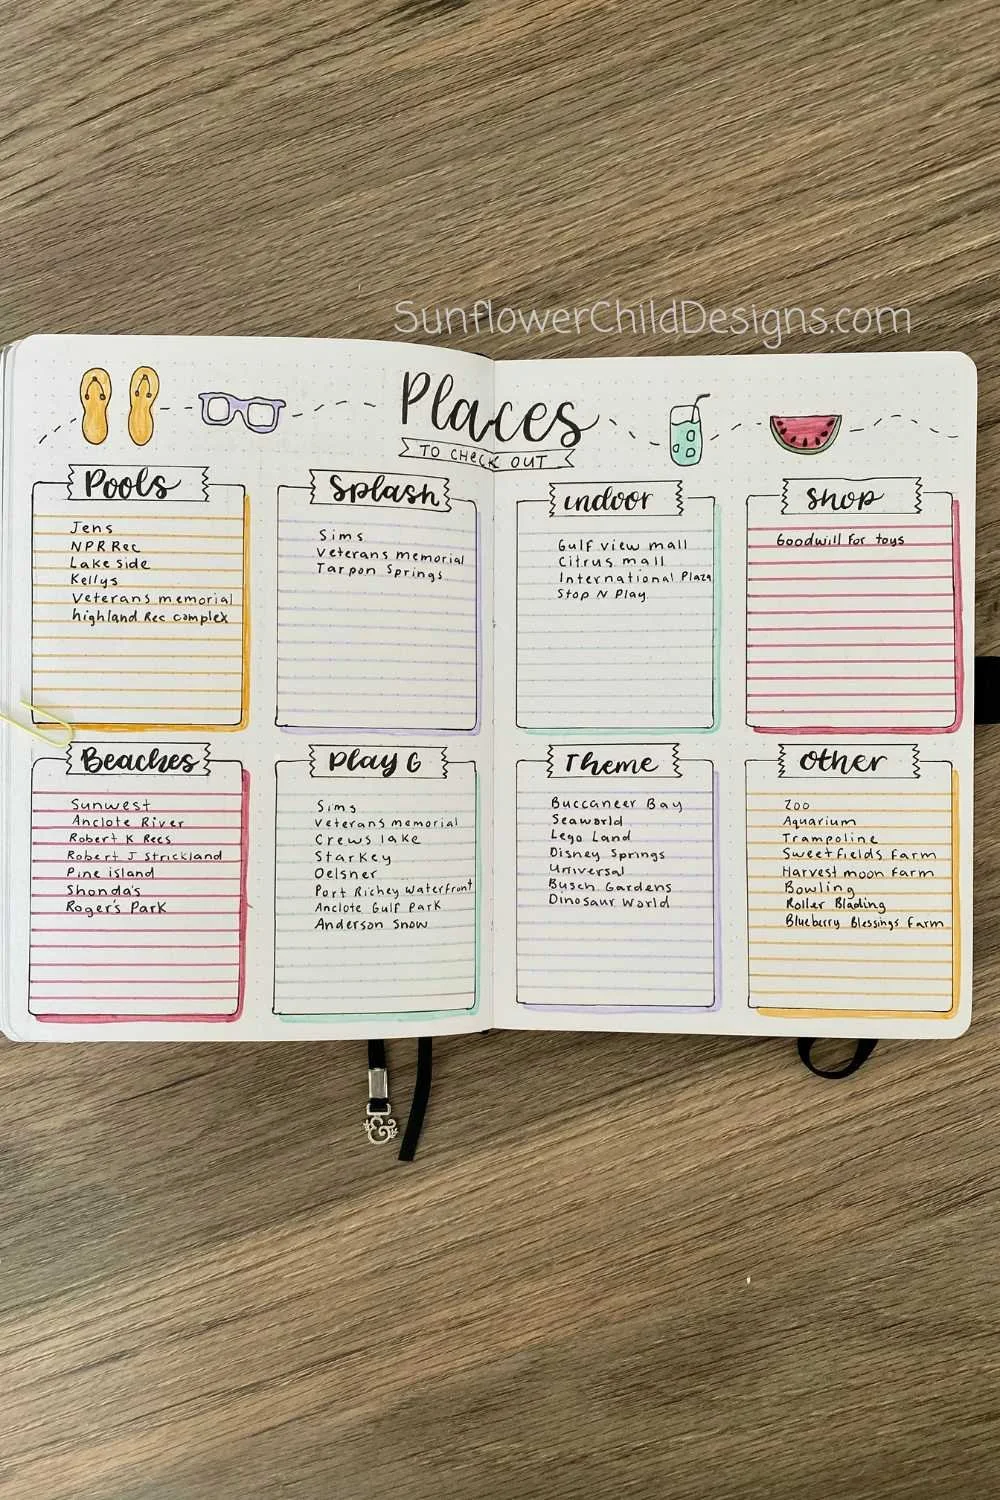 SunflowerChildDesigns.com
Places
TO CHECK OUT
Pools
Jens
NPR Rec
Lake side
Kellys
Veterans memorial
highland Rec complex
Splash
Sims
Veterans memorial
Tarpon Springs
indoor
Gulf view mall
Citrus mall
International Plaza
Stop N Play
Shop
Goodwill for toys
Beaches
Sunwest
Anclote River
Robert K Rees
Robert J Strickland
Pine island
Shonda's
Roger's Park
Play G
Sims
Veterans memorial
Crews lake
Starkey
Oelsner
Port Richey Waterfront
Anclote Gulf Park
Anderson Snow
Theme
Buccaneer Bay
Seaworld
Lego Land
Disney Springs
Universal
Busch Gardens
Dinosaur World
Other
Zoo
Aquarium
Trampoline
Sweetfields Farm
Harvest moon Farm
Bowling
Roller Blading
Blueberry Blessings Farm